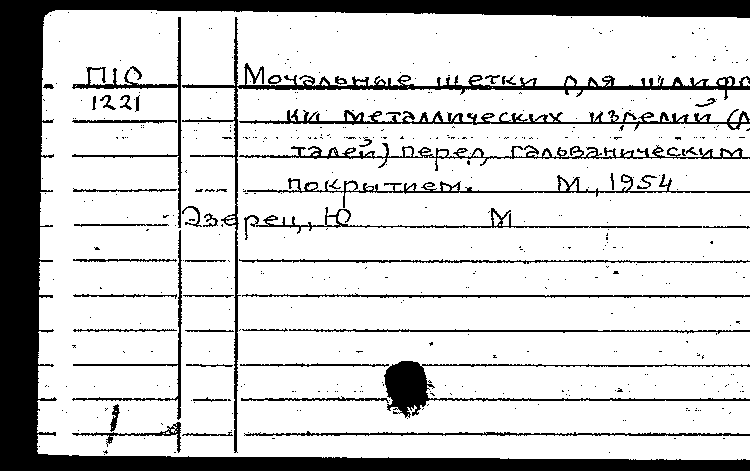 П10 Мочальные щетки для шлифо
1221
ки металлических изделий (
талей) перед гальваническим
покрытием. М., 1954
Эзерец, Ю М